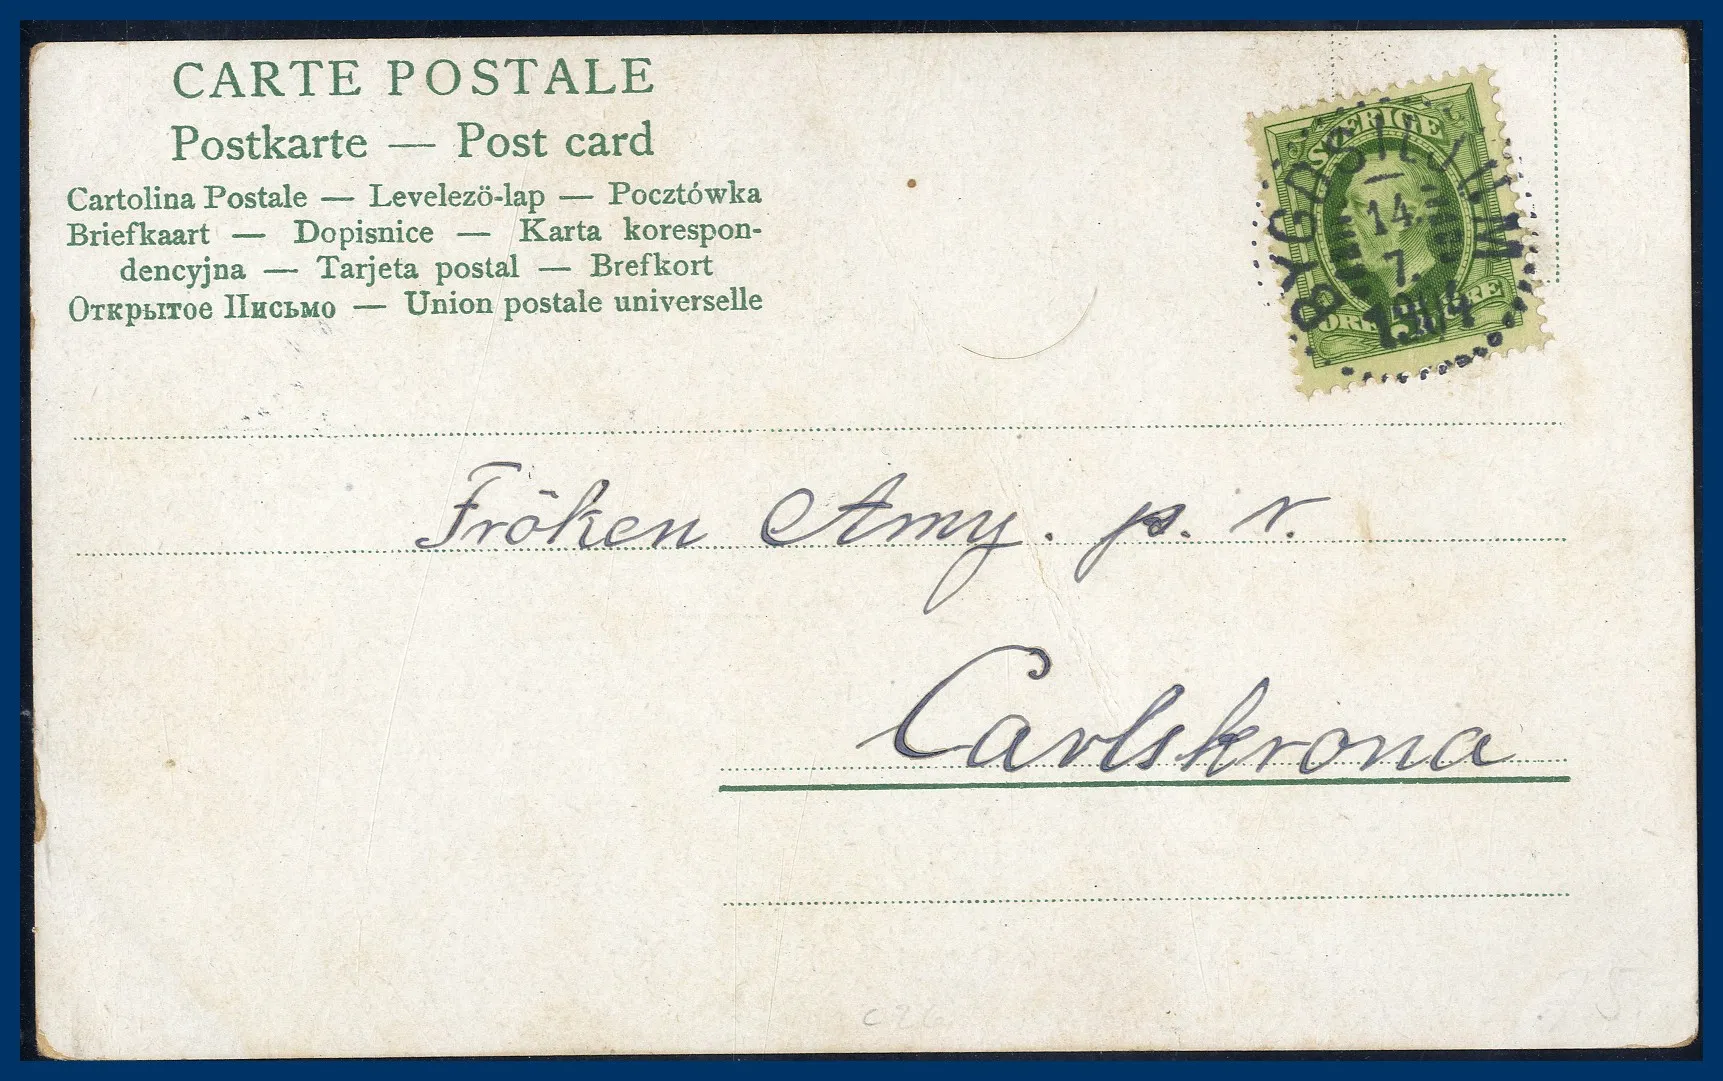 CARTE POSTALE
Postkarte — Post card
Cartolina Postale — Levelezö-lap — Pocztówka
Briefkaart — Dopisnice — Karta korespon-
dencyjna — Tarjeta postal — Brefkort
Открытое Письмо — Union postale universelle
SVERIGE
BYGDSILJUM
14
7.
1904
5 ÖRE
Fröken Amy. p. r.
Carlskrona